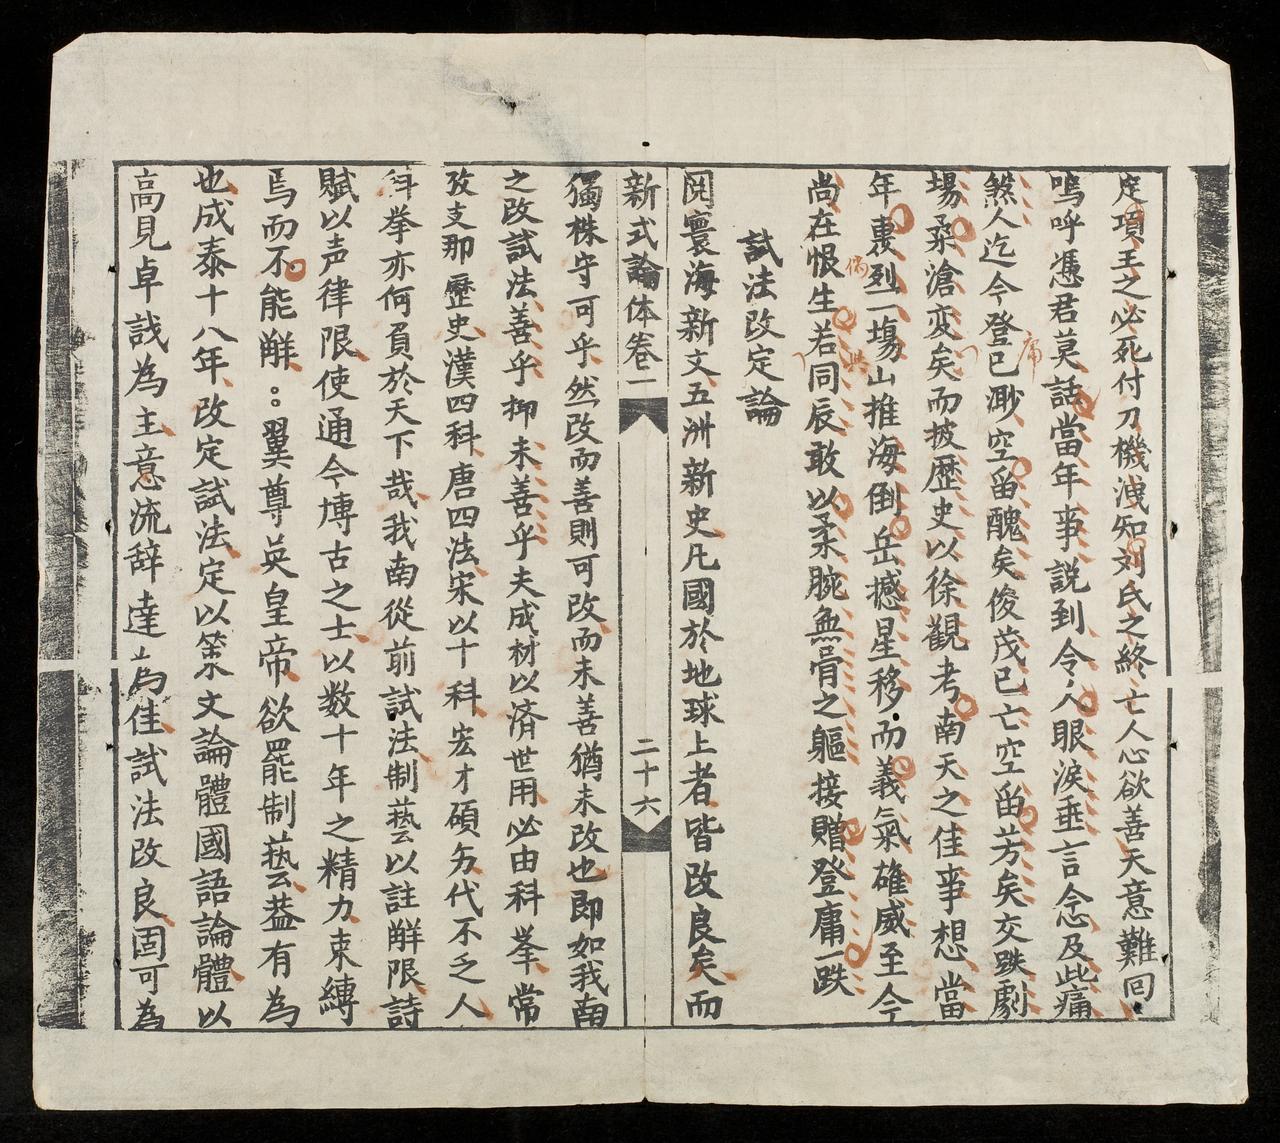 定項王之必死付刀機洩知刘氏之終亡人心欲善天意難回
嗚呼憑君莫話當年事説到令人眼淚垂言念及此痛
煞人迄今登已渺空畱醜矣俊茂已亡空畱芳矣交跌劇
席
場桑滄変矣而披歷史以徐觀考南天之佳事想當
年裹烈一塲山摧海倒岳撼星移而義氣雄威至今
尚在恨生若同辰敢以柔腕無骨之軀接贈登庸一跌
試法改定論
閲寰海新文五洲新史凢國於地球上者皆改良矣而
新式論体卷一
二十六
獨株守可乎然改而善則可改而未善猶未改也即如我南
之改試法善乎抑未善乎夫成材以済世用必由科举常
攷支那歷史漢四科唐四法宋以十科宏才碩夯代不乏人
科举亦何負於天下哉我南從前試法制藝以註解限詩
賦以声律限使通今博古之士以数十年之精力束縛
焉而不能觧翼尊英皇帝欲罷制藝葢有為
也成泰十八年改定試法定以策文論體國語論體以
高見卓識為主意流辞達為佳試法改良固可為